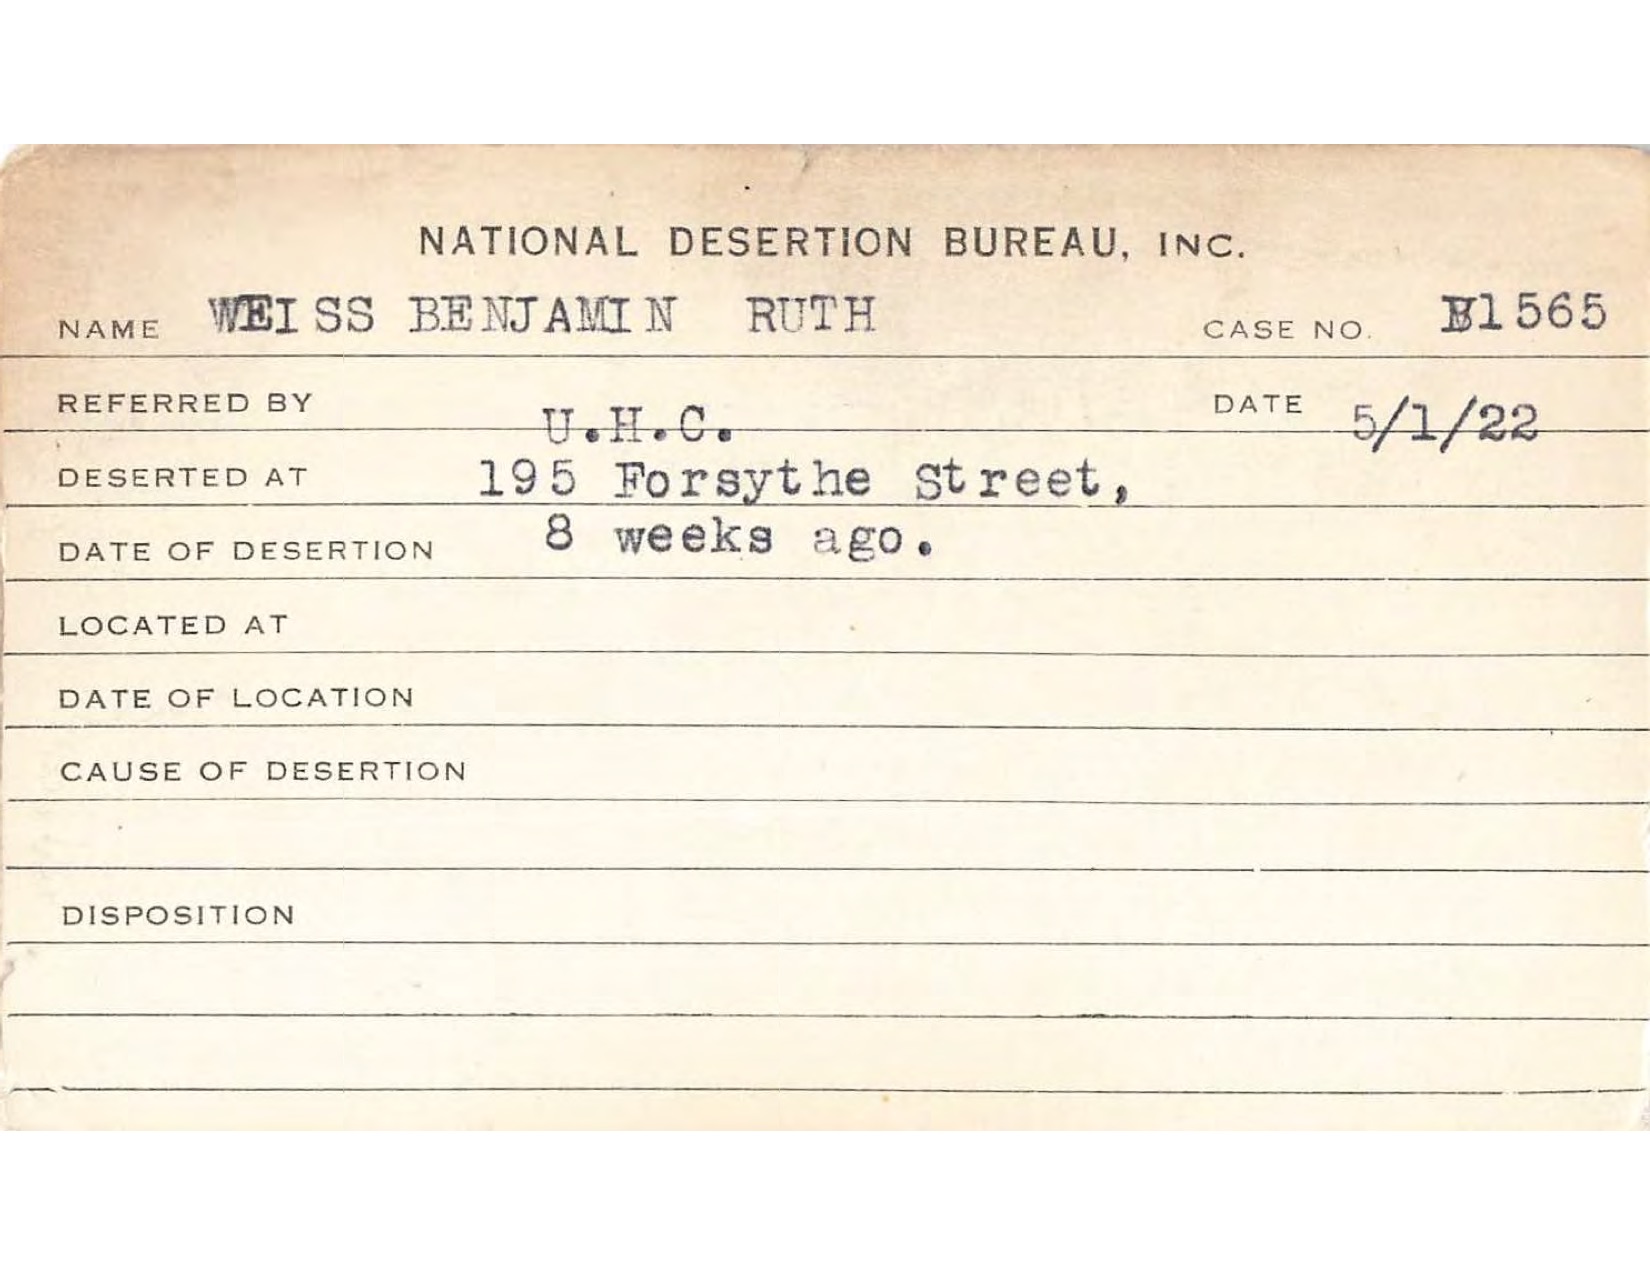 NATIONAL DESERTION BUREAU, INC.
NAME WEISS BENJAMIN RUTH CASE NO. B1565
REFERRED BY U.H.C. DATE 5/1/22
DESERTED AT 195 Forsythe Street,
DATE OF DESERTION 8 weeks ago.
LOCATED AT
DATE OF LOCATION
CAUSE OF DESERTION
DISPOSITION